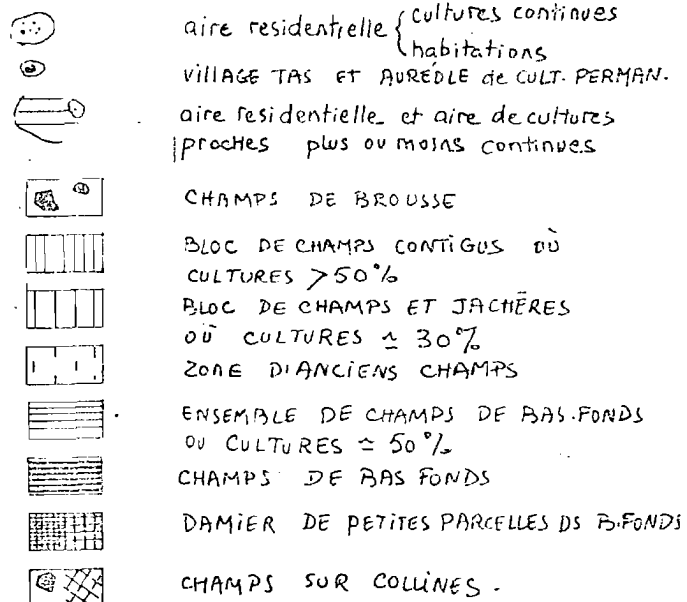 aire residentielle { cultures continues
habitations
VILLAGE TAS ET AURÉOLE de CULT. PERMAN.
aire residentielle et aire de cultures
proches plus ou moins continues
CHAMPS DE BROUSSE
BLOC DE CHAMPS CONTIGUS OÙ
CULTURES > 50%
BLOC DE CHAMPS ET JACHÈRES
OÙ CULTURES ≃ 30%
ZONE D'ANCIENS CHAMPS
ENSEMBLE DE CHAMPS DE BAS-FONDS
OU CULTURES ≃ 50%
CHAMPS DE BAS FONDS
DAMIER DE PETITES PARCELLES DS B.FONDS
CHAMPS SUR COLLINES.